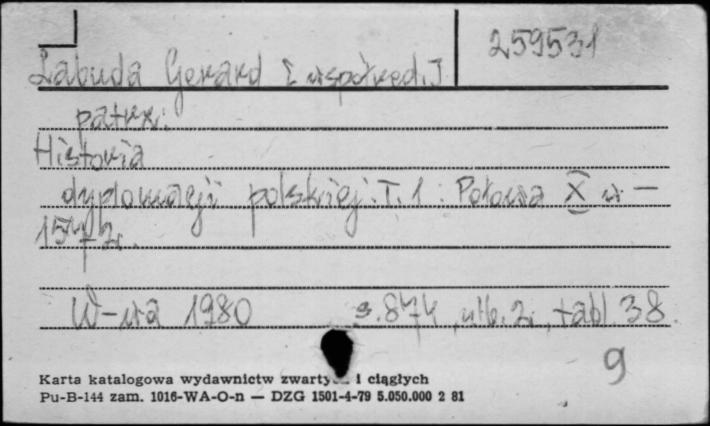 259531
Labuda Gerard [współred.]
patrz:
Historia
dyplomacji polskiej. T. 1: Połowa X w –
1572.
W-wa 1980 s. 874, nlb. 2, tabl. 38.
9
Karta katalogowa wydawnictw zwarty i ciągłych
Pu-B-144 zam. 1016-WA-O-n — DZG 1501-4-79 5.050.000 2 81